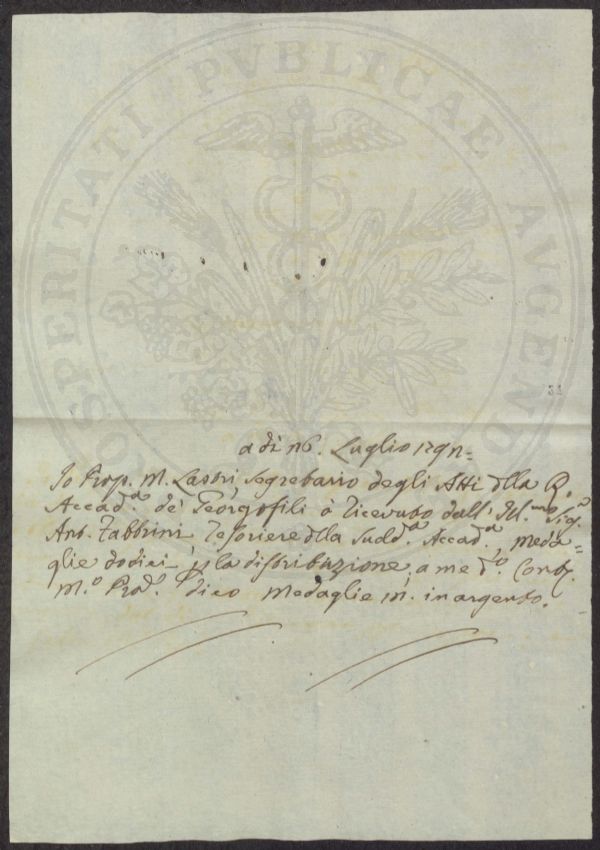 PROSPERITATI PVBLICAE AVGENDAE
a dì 16. Luglio 1791=
Io Prop. M. Lastri Segretario degli Atti della R.
Accad.a de' Georgofili ò ricevuto dall'. Ill.mo Sig.
Ant. Fabbrini Tesoriere della Sudd.a Accad.a, meda=
glie dodici la distribuzione, a me d.o
M.o dico Medaglie in argento.